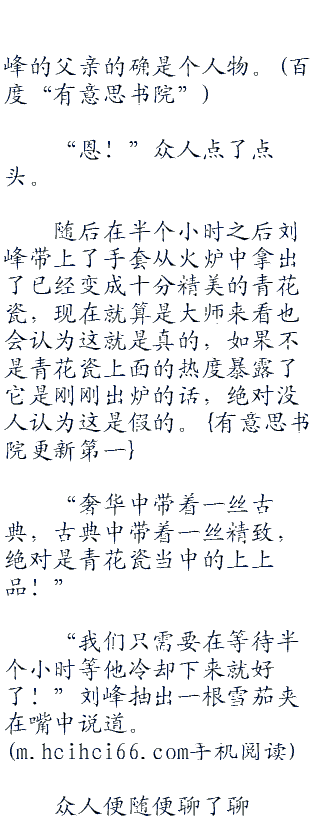 峰的父亲的确是个人物。（百
度“有意思书院”）
“恩！”众人点了点
头。
随后在半个小时之后刘
峰带上了手套从火炉中拿出
了已经变成十分精美的青花
瓷，现在就算是大师来看也
会认为这就是真的，如果不
是青花瓷上面的热度暴露了
它是刚刚出炉的话，绝对没
人认为这是假的。{有意思书
院更新第一}
“奢华中带着一丝古
典，古典中带着一丝精致，
绝对是青花瓷当中的上上
品！”
“我们只需要在等待半
个小时等他冷却下来就好
了！”刘峰抽出一根雪茄夹
在嘴中说道。
(m.hcihci66.com手机阅读)
众人便随便聊了聊